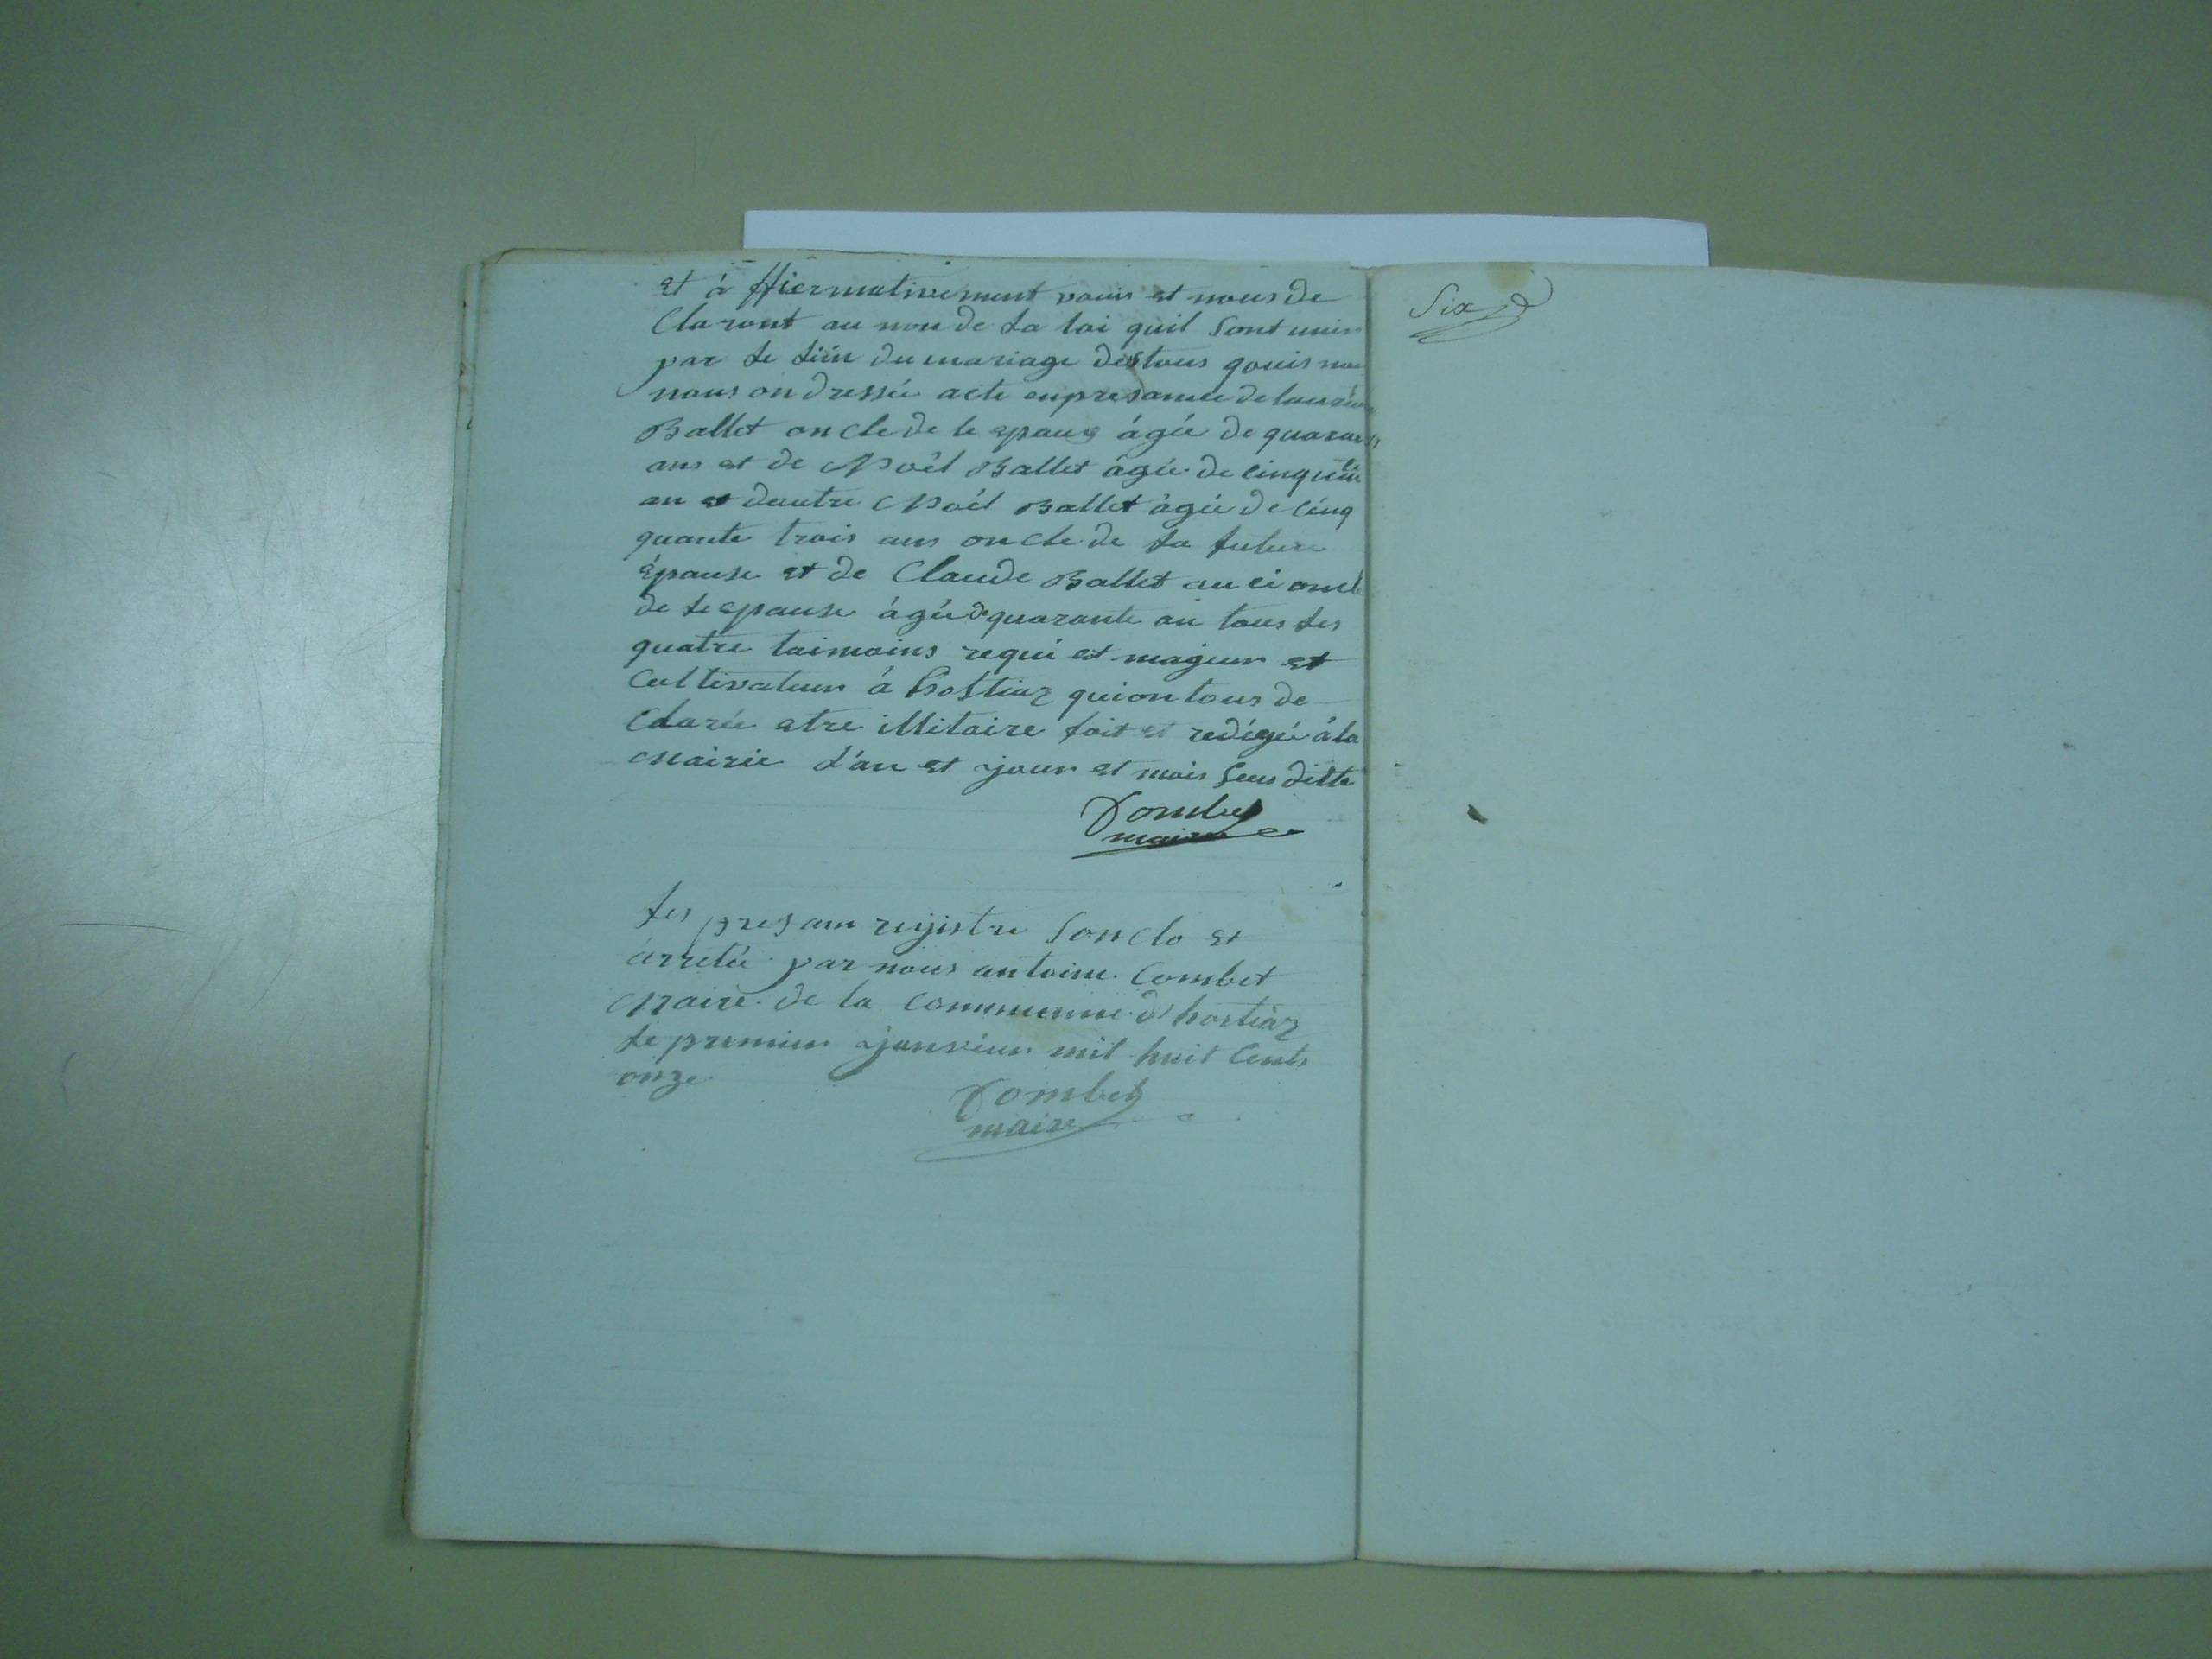 et á ffiermativement vouis et nous de
Claront au non de la loi quil sont unis
par le liin du mariage des tous qouis
nous on dressée acte enpresance de
Ballet oncle de le epaus ágée de
ans et de Noêl Ballet ágée de
an et dautre Noél Ballet ágée de Cinq
quante trois ans oncle de la future
épause et de Claude Ballet au ci oncle
de le epause ágée de quarante an tous les
quatre taimoins requi et mageur et
Cultivateur á hostiaz quion tous de
Clarée etre illitaire fait et redigée á la
Mairie l'an et jour et mois sus ditte
Combet
maire
Les presam registre son clo et
arretée par nous antoine Combet
Maire de la Communne d'hostiaz
le premier janvieur mil huit Cents
onze
Combet
maire
Six